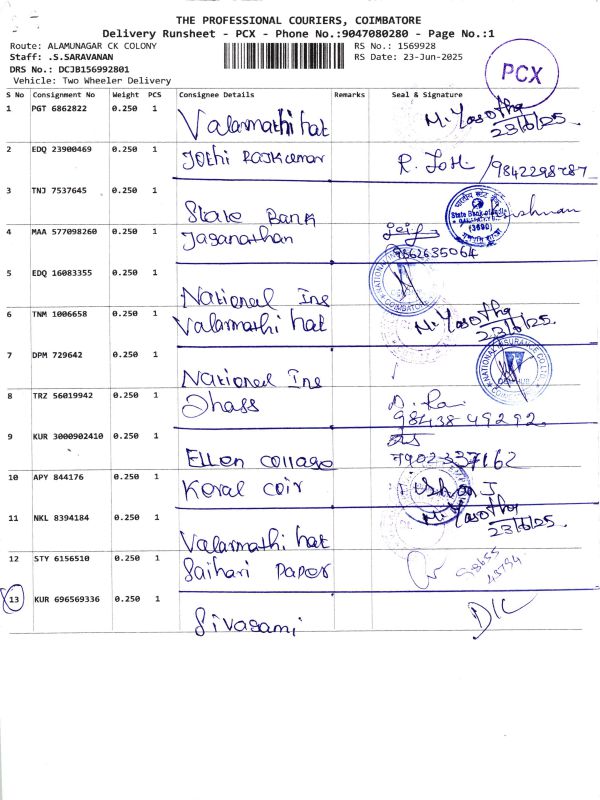 THE PROFESSIONAL COURIERS, COIMBATORE
Delivery Runsheet - PCX - Phone No.:9047080280 - Page No.:1
Route: ALAMUNAGAR CK COLONY
RS No.: 1569928
Staff: .S.SARAVANAN
RS Date: 23-Jun-2025
DRS No.: DCJB156992801
Vehicle: Two Wheeler Delivery
PCX
S No Consignment No Weight PCS Consignee Details Remarks Seal & Signature
1 PGT 6862822 0.250 1 Valarmathi hat M. Yasotha
23/6/25.
2 EDQ 23900469 0.250 1 Jothi Rajkumar R. Jothi /9842298787
3 TNJ 7537645 0.250 1 State Bank
State Bank of India
(3690)
4 MAA 577098260 0.250 1 Jaganathan
9862635064
5 EDQ 16083355 0.250 1 National Ins
COIMBATORE
6 TNM 1006658 0.250 1 Valarmathi hat M. Yasotha
23/6/25.
7 DPM 729642 0.250 1 National Ins
NATIONAL INSURANCE CO. LTD.
8 TRZ 56019942 0.250 1 Dhass
98438 49292
9 KUR 3000902410 0.250 1 Ellen Collage
7902337162
10 APY 844176 0.250 1 Keral Coir
11 NKL 8394184 0.250 1 Valarmathi hat M. Yasotha
23/6/25.
12 STY 6156510 0.250 1 Saihari Paper 98655
43794
13 KUR 696569336 0.250 1 Sivasami D/C